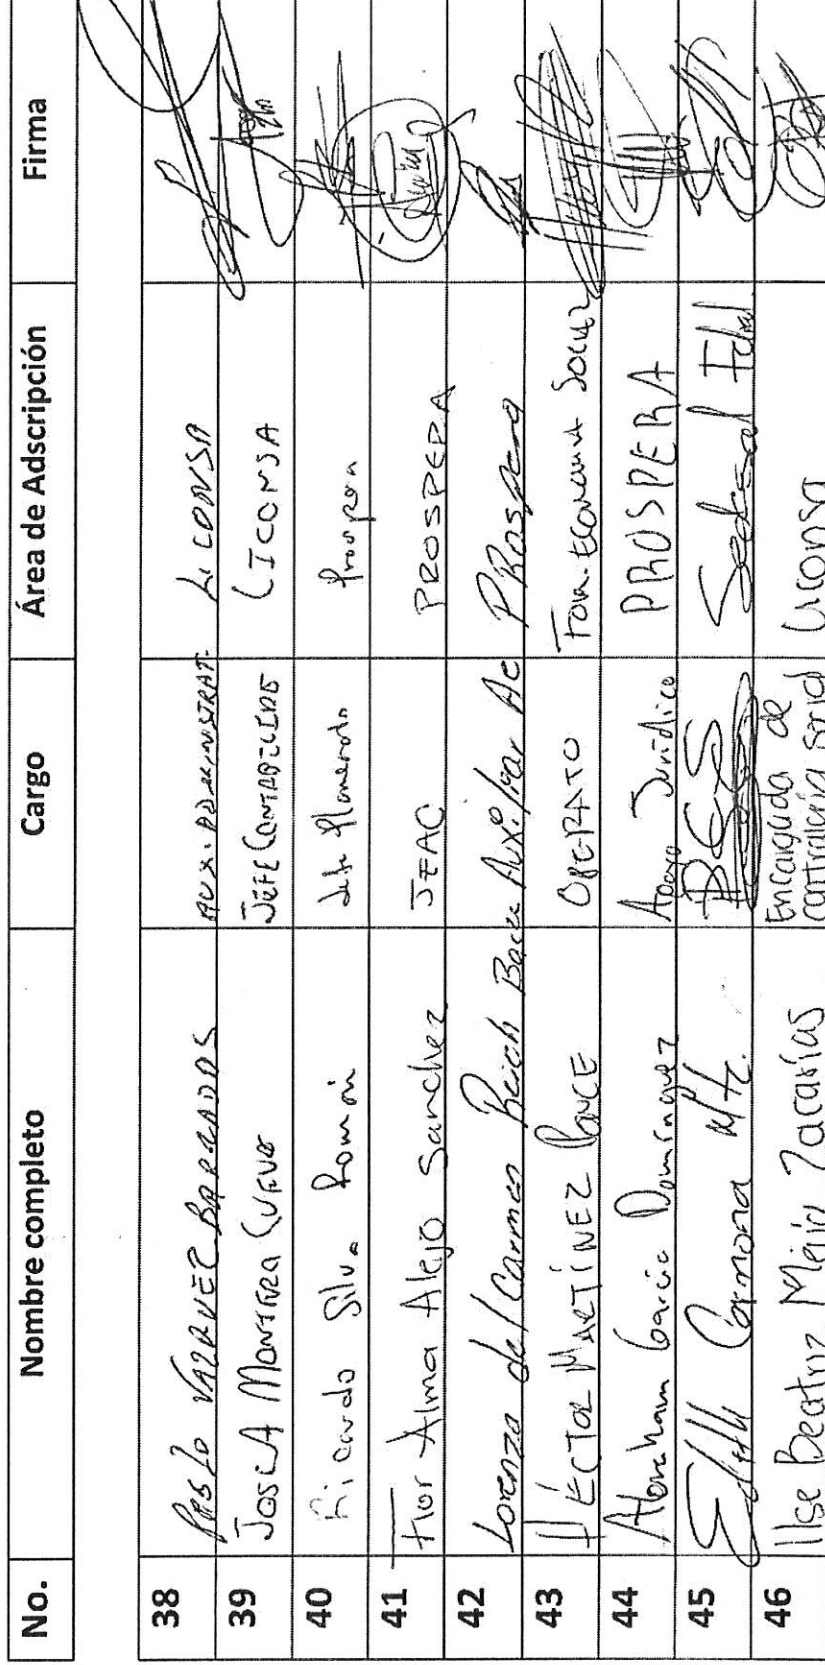 No. Nombre completo Cargo Área de Adscripción Firma
38 Pablo VAZQUEZ BARCADAS AUX. ADMINISTRAT. LICONSA
39 JOSE A MONTERA CUEVAS JEFE CONTABILIDAD LICONSA
40 Ricardo Silva Román Jefe Planeando Prospera
41 Flor Alma Alejo Sanchez JEAC PROSPERA
42 Lorenza del Carmen Auxiliar AC PROSPERA
43 HÉCTOR MARTÍNEZ PONCE OPERATO Fom. Economia Social
44 Abraham García Domínguez Apoyo Jurídico PROSPERA
45 Edith Carmona Mtz. Sedesol Fedral
46 Ilse Beatriz Mejia Zacarías Encargada de contraloría social Liconsa